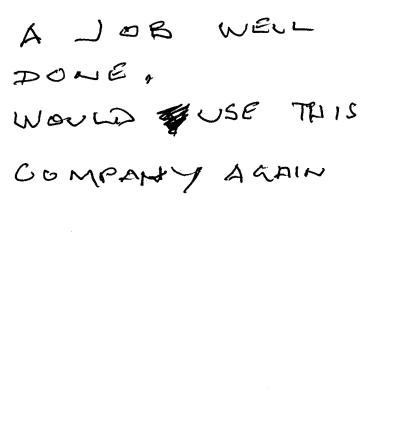 A JOB WELL
DONE.
WOULD USE THIS
COMPANY AGAIN